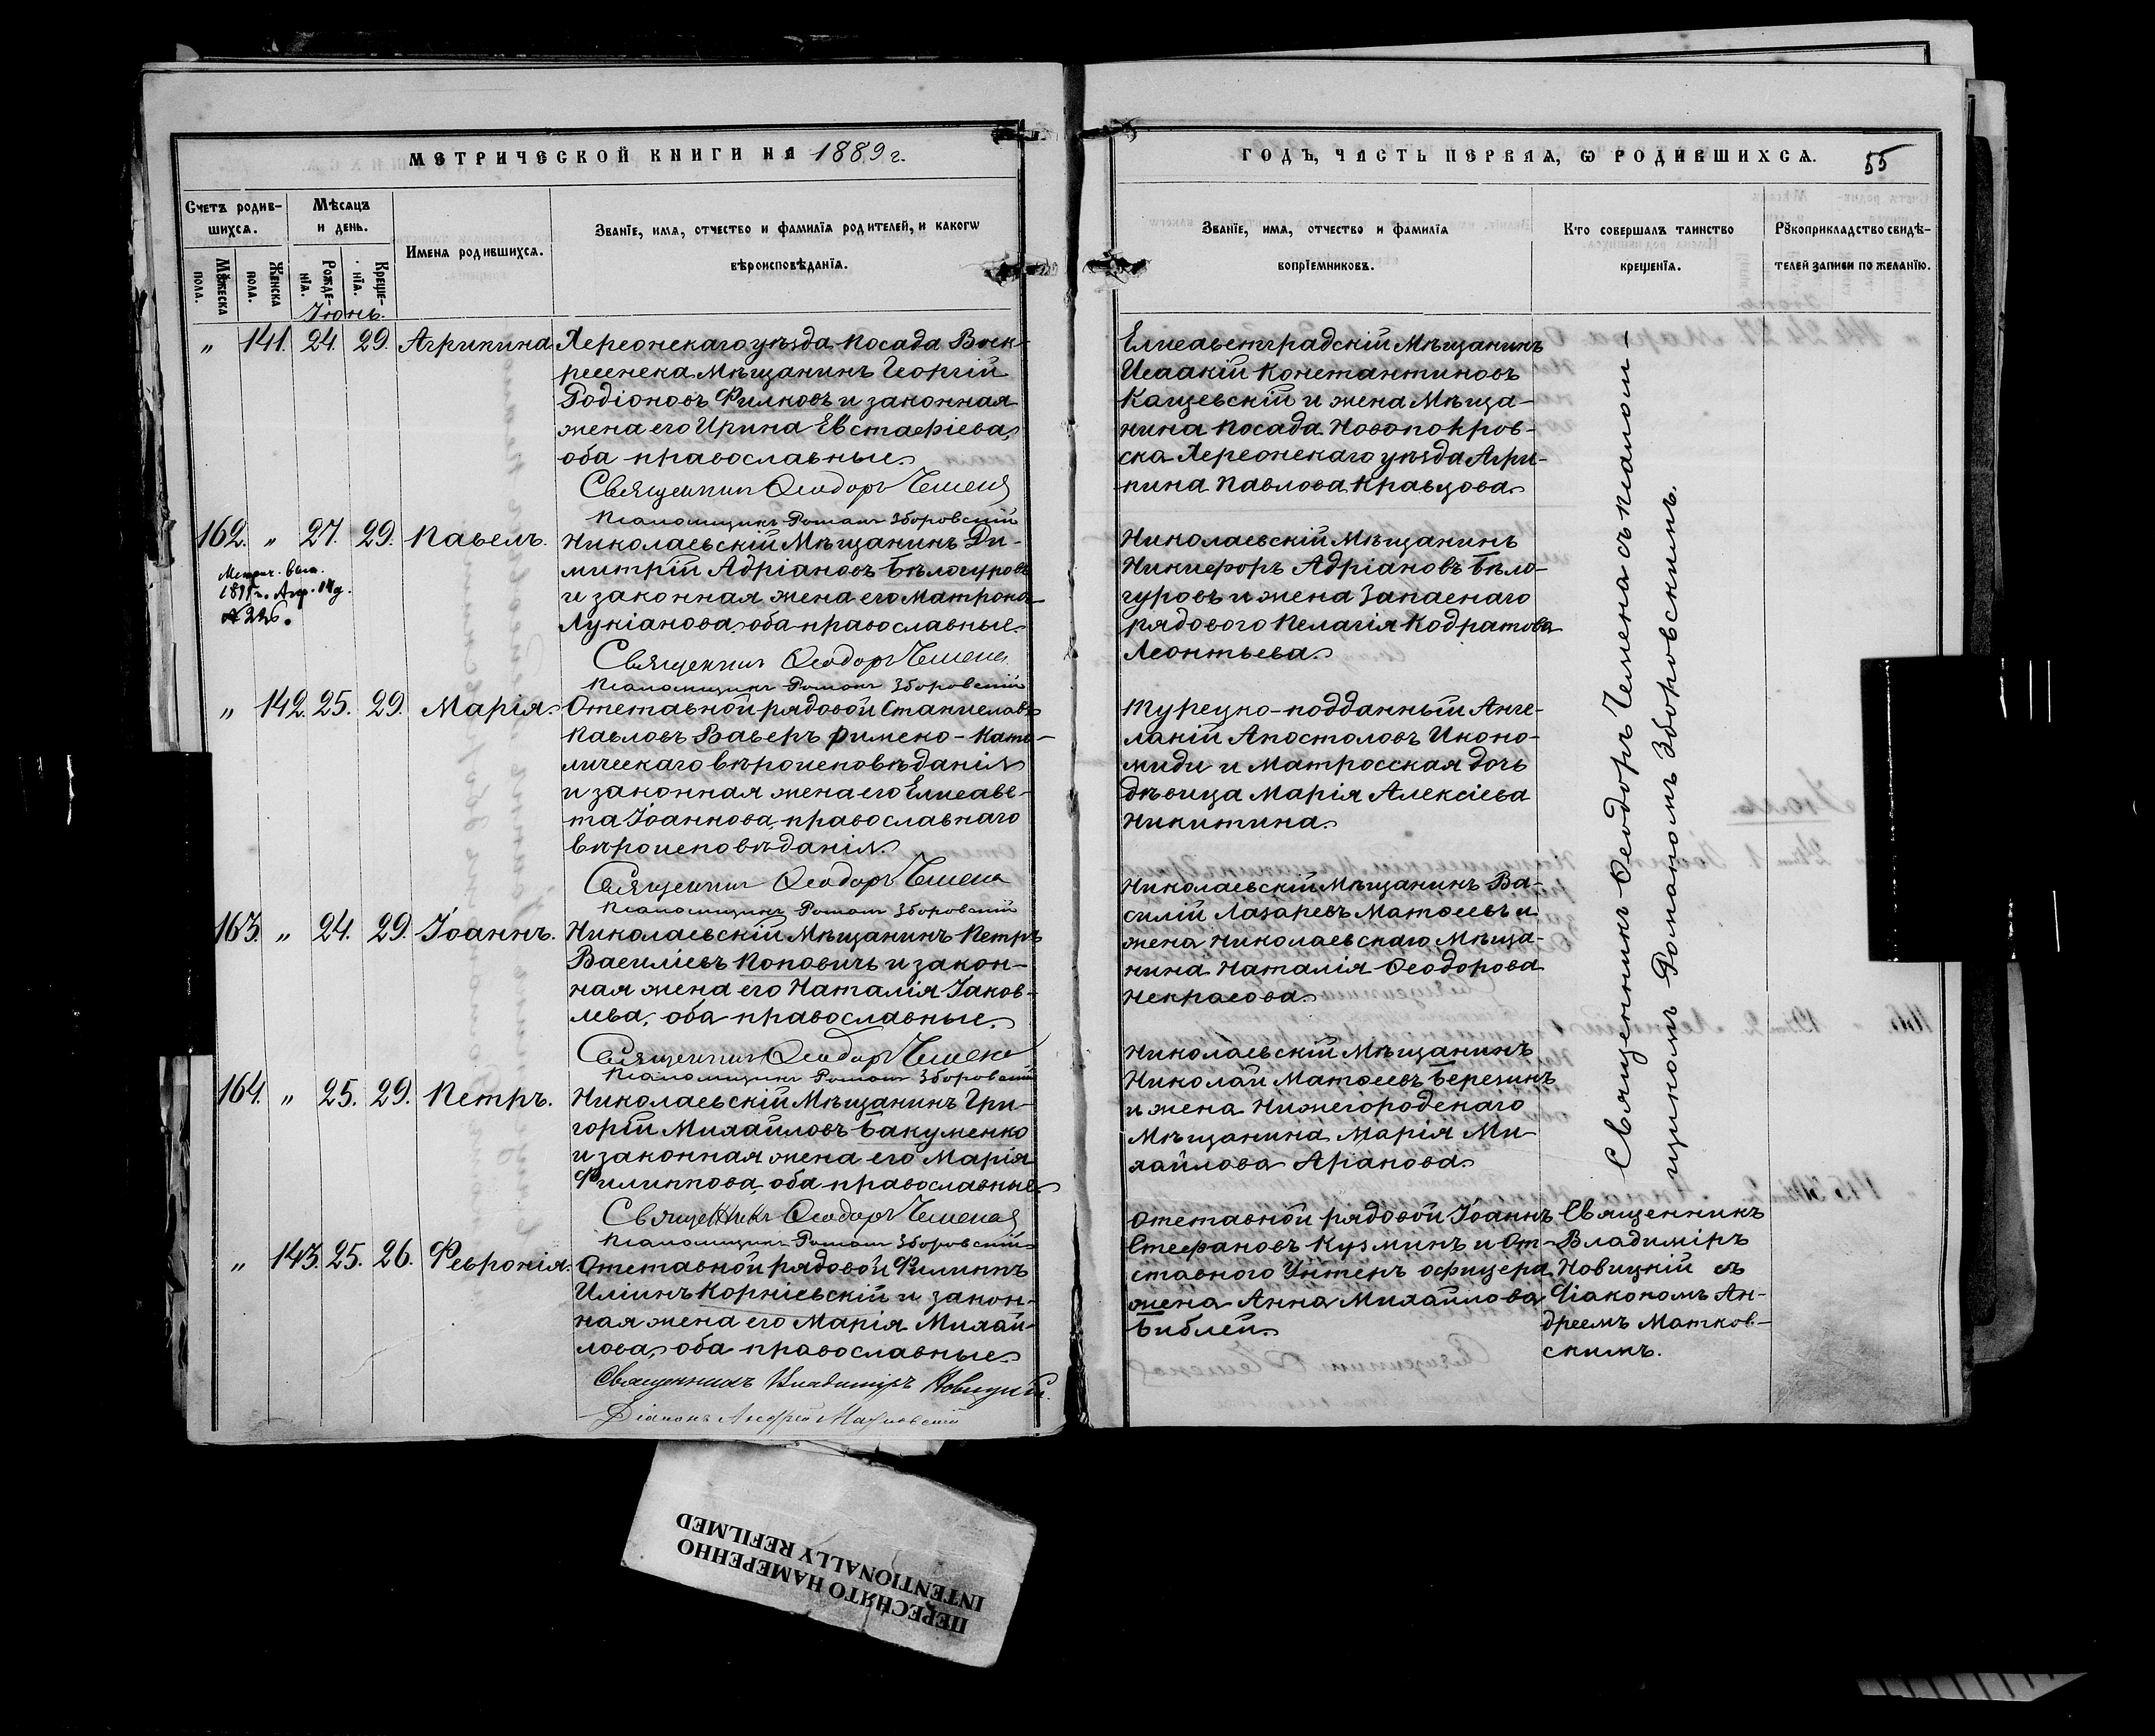 МЕТРИЧЕСКОЙ КНИГИ НА 1889 г.
Счетъ родившихся.
Мѣсяцъ и день.
Имена родившихся.
Званіе, имя, отчество и фамилія родителей, и какого
вѣроисповѣданія.
Мужеска пола.
Женска пола.
Рожденія.
Крещенія.
Іюнь.
" 141. 24. 29. Агрипина
Херсонскаго уѣзда посада Воск-
ресенска Мѣщанинъ Георгій
Родіоновъ Филковъ и законная
жена его Ирина Евстафіева,
оба православные.
Священник Ѳеодоръ Чемена
Псаломщикъ Романъ Зборовскій
162. " 27. 29. Павелъ.
Николаевскій Мѣщанинъ Ди-
митрій Адріановъ Бѣлогуровъ
и законная жена его Матрона
Лукіанова, оба православные.
Священник Ѳеодоръ Чемена
Псаломщикъ Романъ Зборовскій
" 142. 25. 29. Марія.
Отставной рядовой Станиславъ
Павловъ Ваверъ римско-като-
лическаго вѣроисповѣданія
и законная жена его Елисаве-
та Іоаннова, православнаго
вѣроисповѣданія.
Священник Ѳеодоръ Чемена
Псаломщикъ Романъ Зборовскій
163. " 24. 29. Іоаннъ.
Николаевскій Мѣщанинъ Петръ
Василіевъ Поповичъ и закон-
ная жена его Наталія Іаков-
лева, оба православные.
Священник Ѳеодоръ Чемена
Псаломщикъ Романъ Зборовскій
164. " 25. 29. Петръ.
Николаевскій Мѣщанинъ Гри-
горій Михайловъ Бакуменко
и законная жена его Марія
Филиппова, оба православные.
Священникъ Ѳеодоръ Чемена
Псаломщикъ Романъ Зборовскій
" 143. 25. 26. Февронія.
Отставной рядовой Филиппъ
Иліинъ Корніевскій и закон-
ная жена его Марія Михай-
лова, оба православные.
Священникъ Владиміръ Новицкій.
Діаконъ Андрей Матковскій
ГОДЪ, ЧАСТЬ ПЕРВАЯ, Ѡ РОДИВШИХСЯ. 55
Званіе, имя, отчество и фамилія
вопріемниковъ.
Кто совершалъ таинство
крещенія.
Рукоприкладство свидѣ-
телей записи по желанію.
Елисаветградскій Мѣщанинъ
Исаакій Константиновъ
Кащевскій и жена Мѣща-
нина посада Новопокров-
ска Херсонскаго уѣзда Агри-
пина Павлова Кравцова.
Николаевскій Мѣщанинъ
Никифоръ Адріановъ Бѣло-
гуровъ и жена Запаснаго
рядового Пелагія Кодратова
Леонтьева.
Турецко-подданный Анге-
лакій Апостоловъ Иконо-
миди и Матросская дочь
дѣвица Марія Алексіева
Никитина.
Николаевскій Мѣщанинъ Ва-
силій Лазаревъ Матвеевъ и
жена Николаевскаго Мѣща-
нина Наталія Ѳеодорова
Некрасова.
Николаевскій Мѣщанинъ
Николай Матвеевъ Березинъ
и жена Нижегородскаго
Мѣщанина Марія Ми-
хайлова Арапова.
Отставной рядовой Іоаннъ
Стефановъ Кузминъ и От-
ставного Унтеръ офицера
жена Анна Михайлова
Библей.
Священникъ Ѳеодоръ Чемена съ псалом-
щикомъ Романомъ Зборовскимъ.
Священникъ
Владиміръ
Новицкій съ
Діакономъ Ан-
дреемъ Матков-
скимъ.
ПЕРЕСНЯТО НАМЕРЕННО
INTENTIONALLY REFILMED